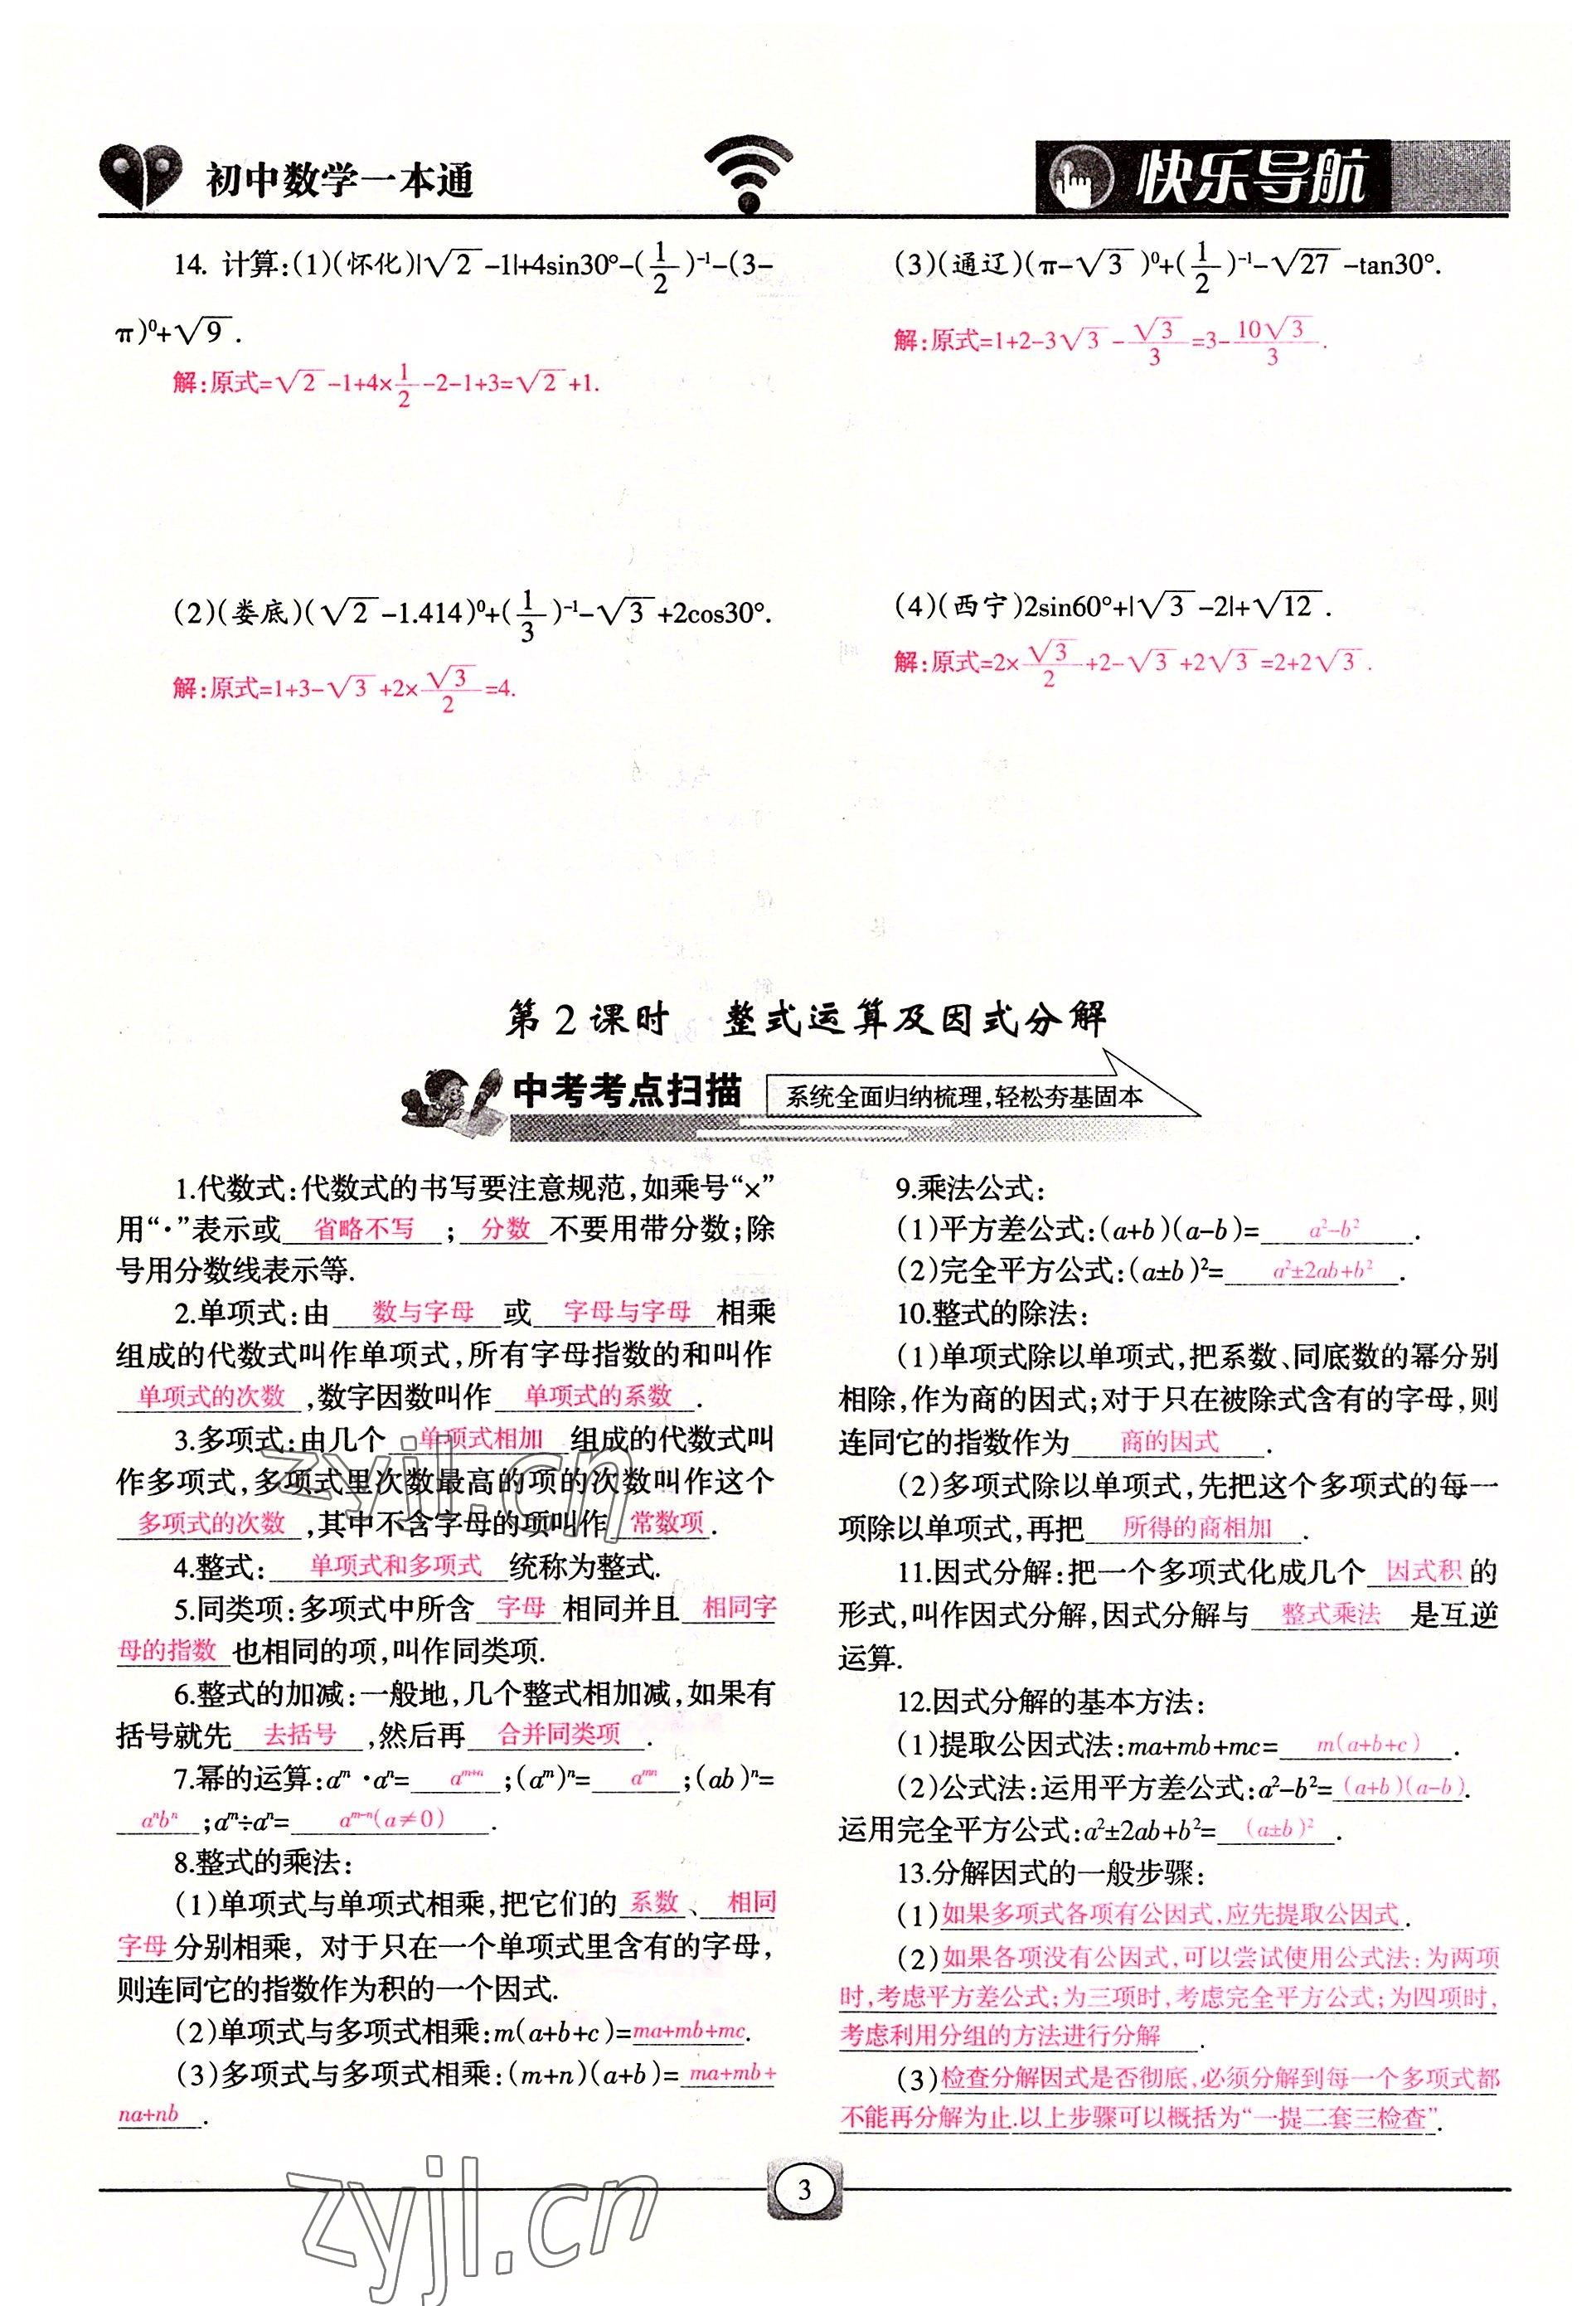 初中数学一本通
快乐导航
14. 计算:(1)(怀化)|√2-1|+4sin30°-(1/2)⁻¹-(3-
π)⁰+√9.
解:原式=√2-1+4×1/2-2-1+3=√2+1.
(2)(娄底)(√2-1.414)⁰+(1/3)⁻¹-√3+2cos30°.
解:原式=1+3-√3+2×√3/2=4.
(3)(通辽)(π-√3)⁰+(1/2)⁻¹-√27-tan30°.
解:原式=1+2-3√3-√3/3=3-10√3/3.
(4)(西宁)2sin60°+|√3-2|+√12.
解:原式=2×√3/2+2-√3+2√3=2+2√3.
第2课时 整式运算及因式分解
中考考点扫描
系统全面归纳梳理,轻松夯基固本
1.代数式:代数式的书写要注意规范,如乘号“×”
用“·”表示或 省略不写 ; 分数 不要用带分数;除
号用分数线表示等.
2.单项式:由 数与字母 或 字母与字母 相乘
组成的代数式叫作单项式,所有字母指数的和叫作
单项式的次数 ,数字因数叫作 单项式的系数 .
3.多项式:由几个 单项式相加 组成的代数式叫
作多项式,多项式里次数最高的项的次数叫作这个
多项式的次数 ,其中不含字母的项叫作 常数项 .
4.整式: 单项式和多项式 统称为整式.
5.同类项:多项式中所含 字母 相同并且 相同字
母的指数 也相同的项,叫作同类项.
6.整式的加减:一般地,几个整式相加减,如果有
括号就先 去括号 ,然后再 合并同类项 .
7.幂的运算:aᵐ·aⁿ= aᵐ⁺ⁿ ;(aᵐ)ⁿ= aᵐⁿ ;(ab)ⁿ=
aⁿbⁿ ;aᵐ÷aⁿ= aᵐ⁻ⁿ(a≠0) .
8.整式的乘法:
(1)单项式与单项式相乘,把它们的 系数 、 相同
字母 分别相乘, 对于只在一个单项式里含有的字母,
则连同它的指数作为积的一个因式.
(2)单项式与多项式相乘:m(a+b+c)=ma+mb+mc.
(3)多项式与多项式相乘:(m+n)(a+b)= ma+mb+
na+nb .
9.乘法公式:
(1)平方差公式:(a+b)(a-b)= a²-b² .
(2)完全平方公式:(a±b)²= a²±2ab+b² .
10.整式的除法:
(1)单项式除以单项式,把系数、同底数的幂分别
相除,作为商的因式;对于只在被除式含有的字母,则
连同它的指数作为 商的因式 .
(2)多项式除以单项式,先把这个多项式的每一
项除以单项式,再把 所得的商相加 .
11.因式分解:把一个多项式化成几个 因式积 的
形式,叫作因式分解,因式分解与 整式乘法 是互逆
运算.
12.因式分解的基本方法:
(1)提取公因式法:ma+mb+mc= m(a+b+c) .
(2)公式法:运用平方差公式:a²-b²=(a+b)(a-b).
运用完全平方公式:a²±2ab+b²= (a±b)² .
13.分解因式的一般步骤:
(1)如果多项式各项有公因式,应先提取公因式.
(2)如果各项没有公因式,可以尝试使用公式法:为两项
时,考虑平方差公式;为三项时,考虑完全平方公式;为四项时,
考虑利用分组的方法进行分解 .
(3)检查分解因式是否彻底,必须分解到每一个多项式都
不能再分解为止.以上步骤可以概括为“一提二套三检查”.
zyjl.cn
zyjl.cn
3